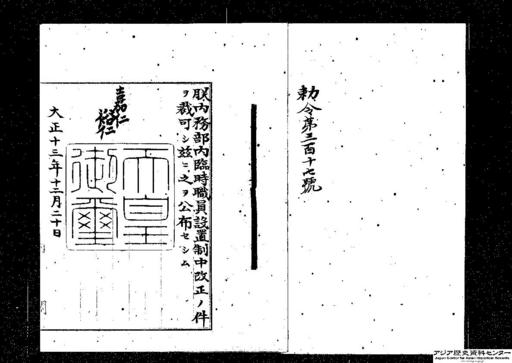 勅令第三百十七號
朕内務部内臨時職員設置制中改正ノ件
ヲ裁可シ玆ニ之ヲ公布セシム
嘉仁
裕仁
天皇
御璽
大正十三年十二月二十日
アジア歴史資料センター
Japan Center for Asian Historical Records